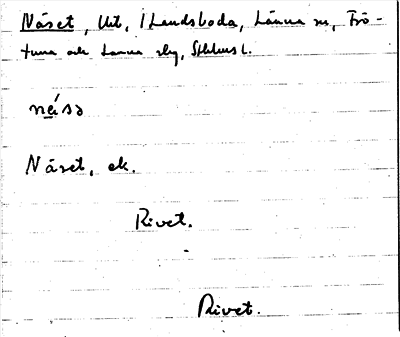 Näset, Ut, i Landsboda, Länna sn, Frö-
tuna och Länna slg, Sthlms l.
nä́sə
Näset, ek.
Rivet.
Rivet.